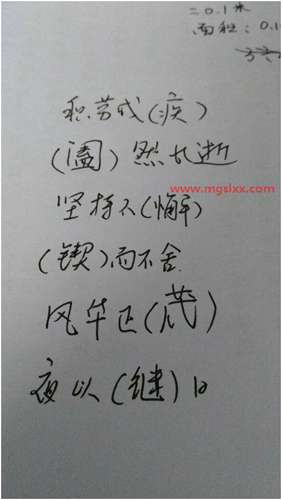 =0.1米
面积：0.1
积劳成(疾)
(阖)然长逝
坚持不(懈)
www.mgslxx.com
(锲)而不舍.
风华正(茂)
夜以(继)日